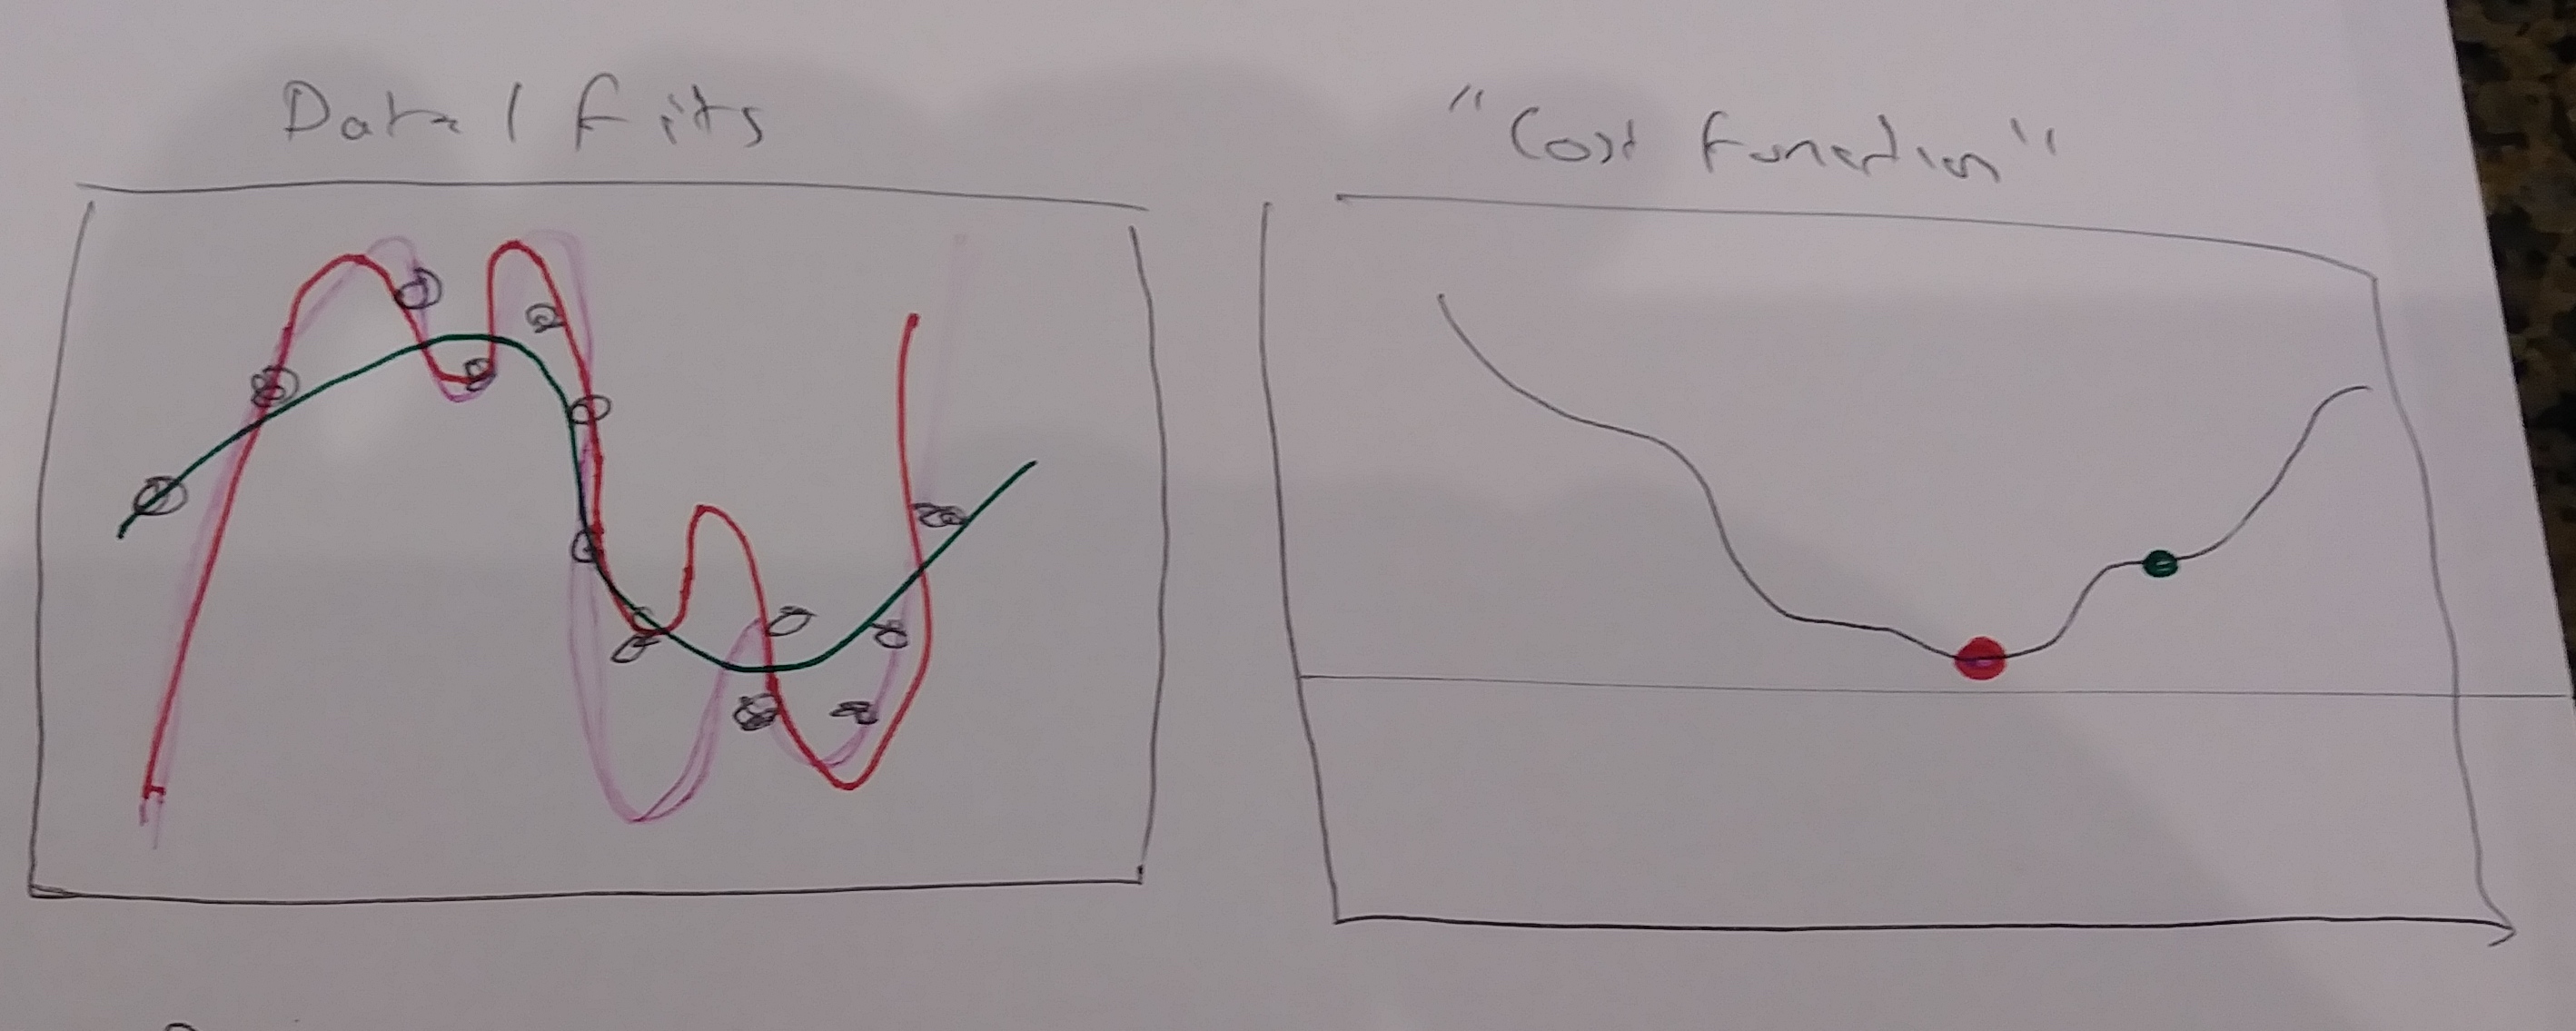 Data / Fits
"Cost Function"